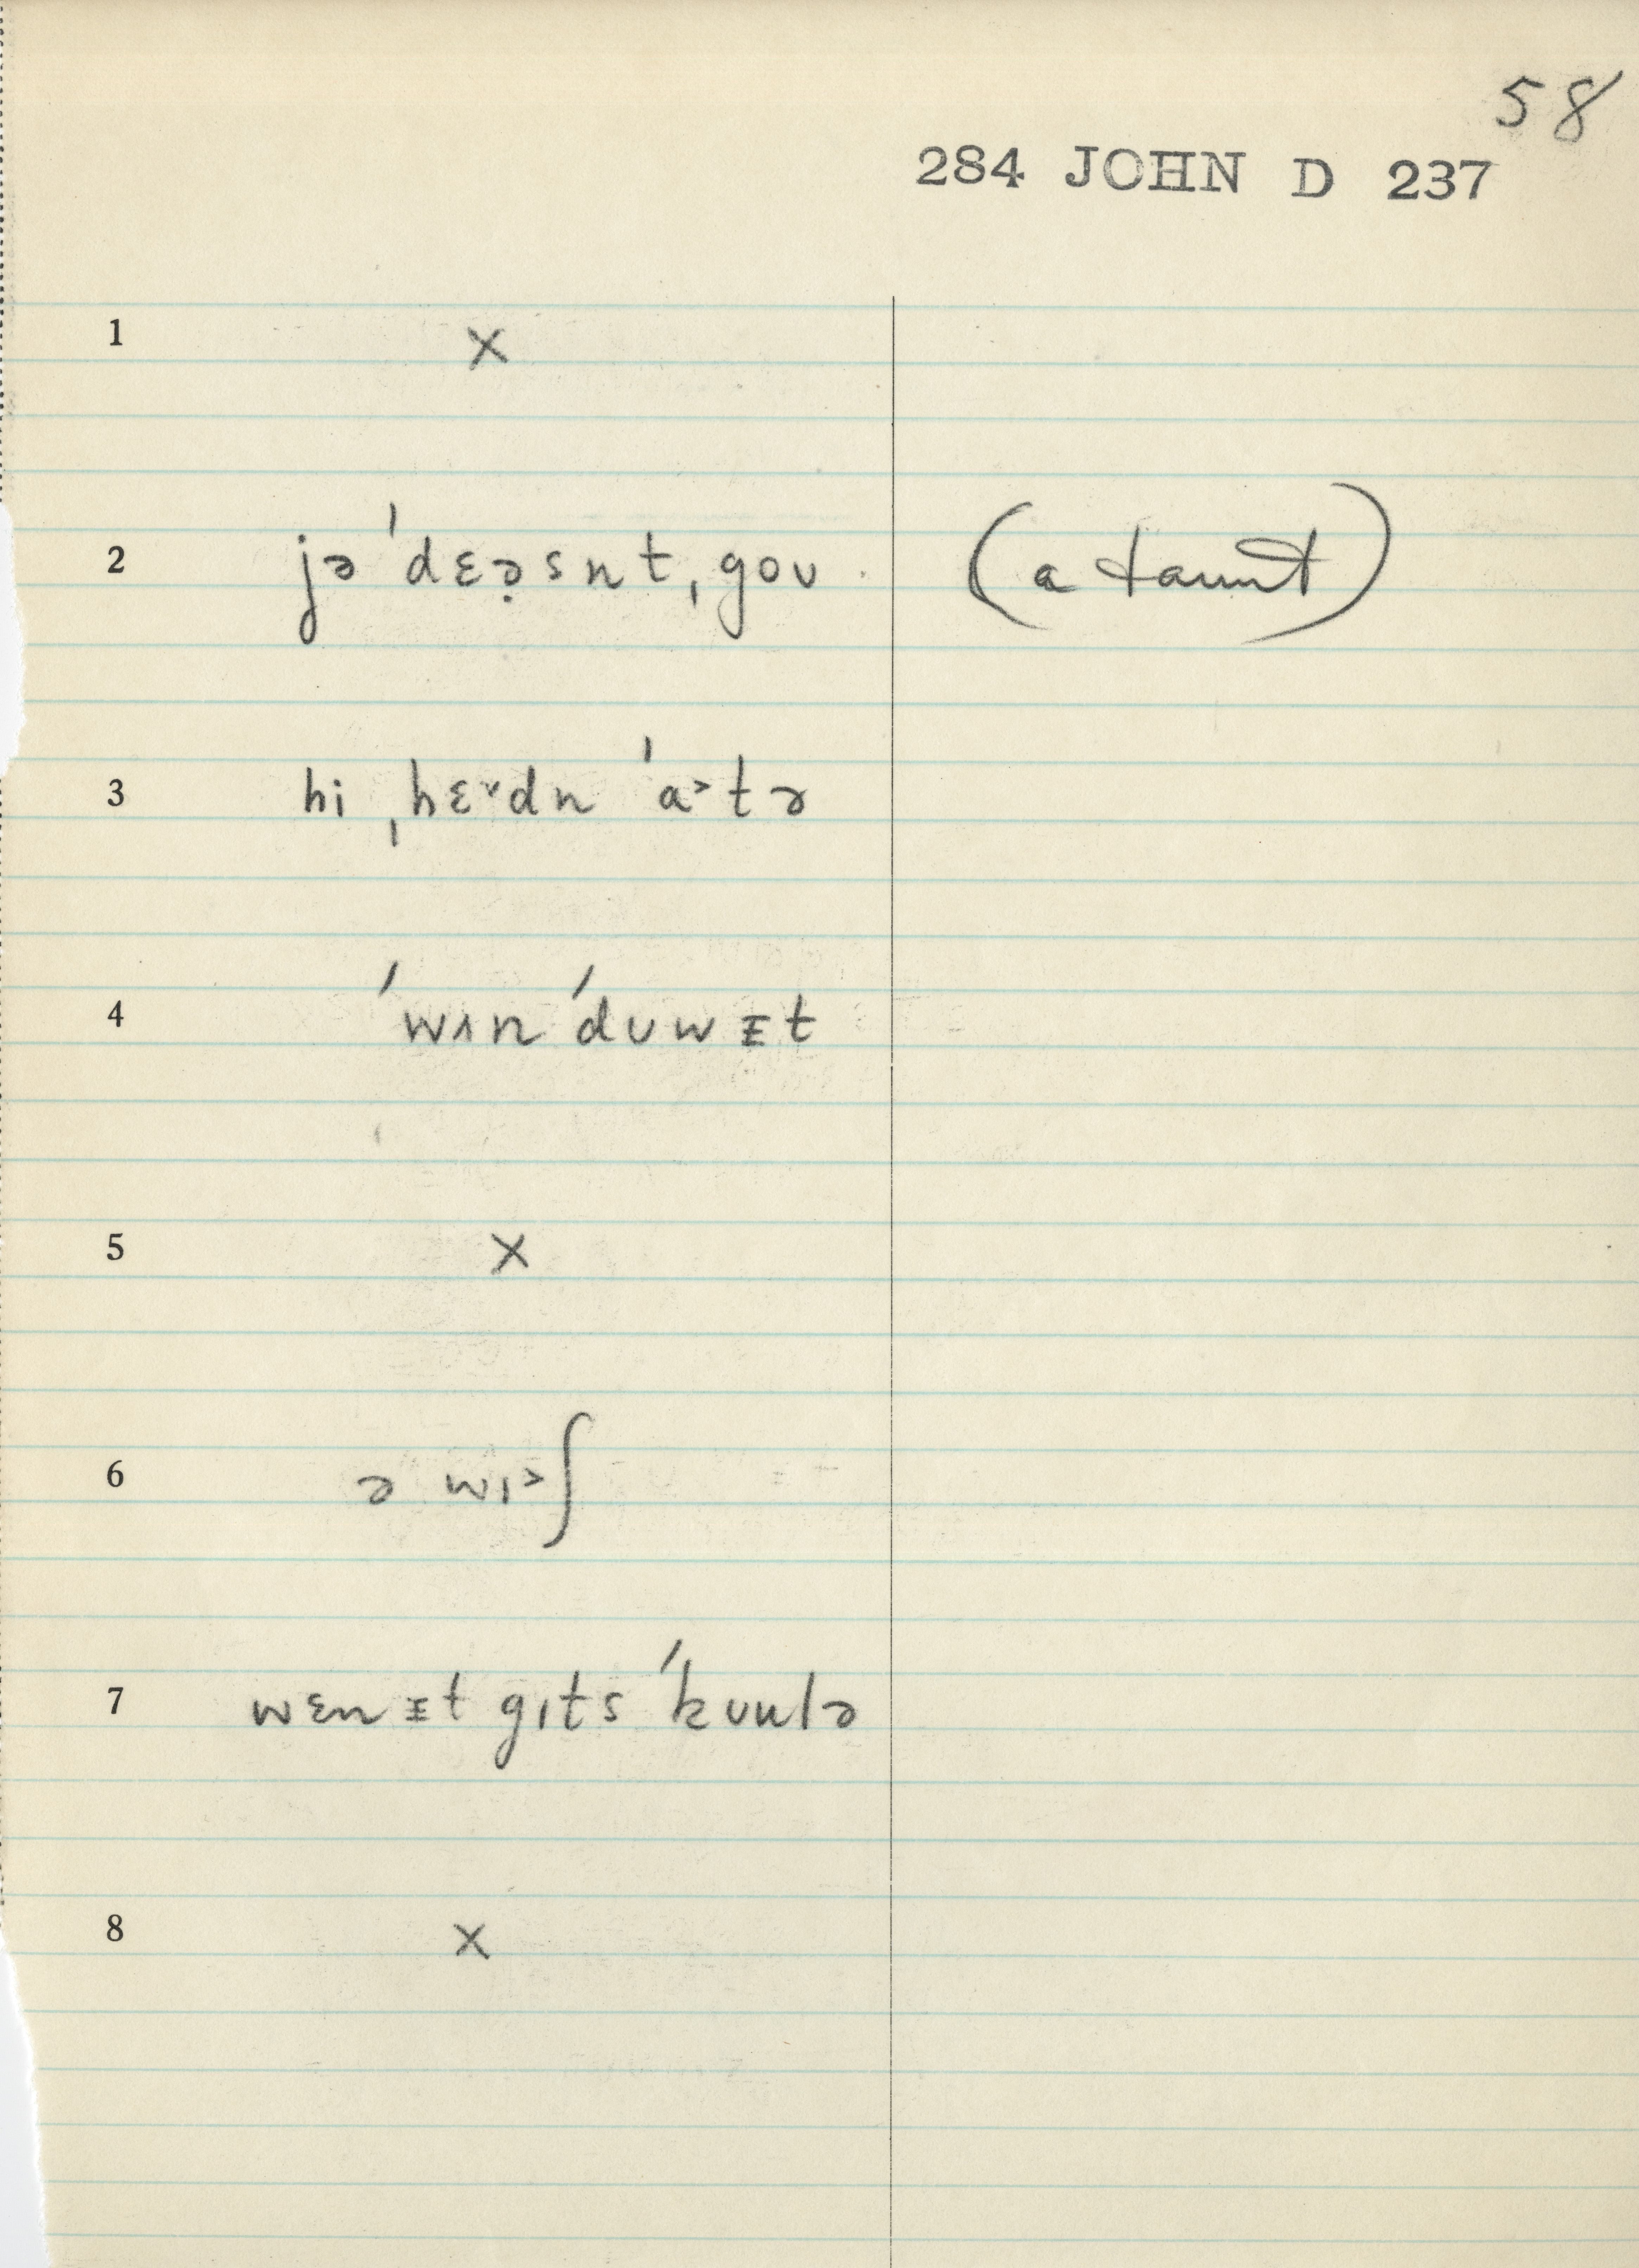 58
284 JOHN D 237
1 x
2 jə ˈdɛə̣snt ˌgoʊ (a taunt)
3 hi ˌhɛ˅dn ˈa˃tə
4 ˈwʌn ˈduwᵻt
5 x
6 ə wɪ˃ʃ
7 wɛn ᵻt gɪts ˈkuulə
8 x